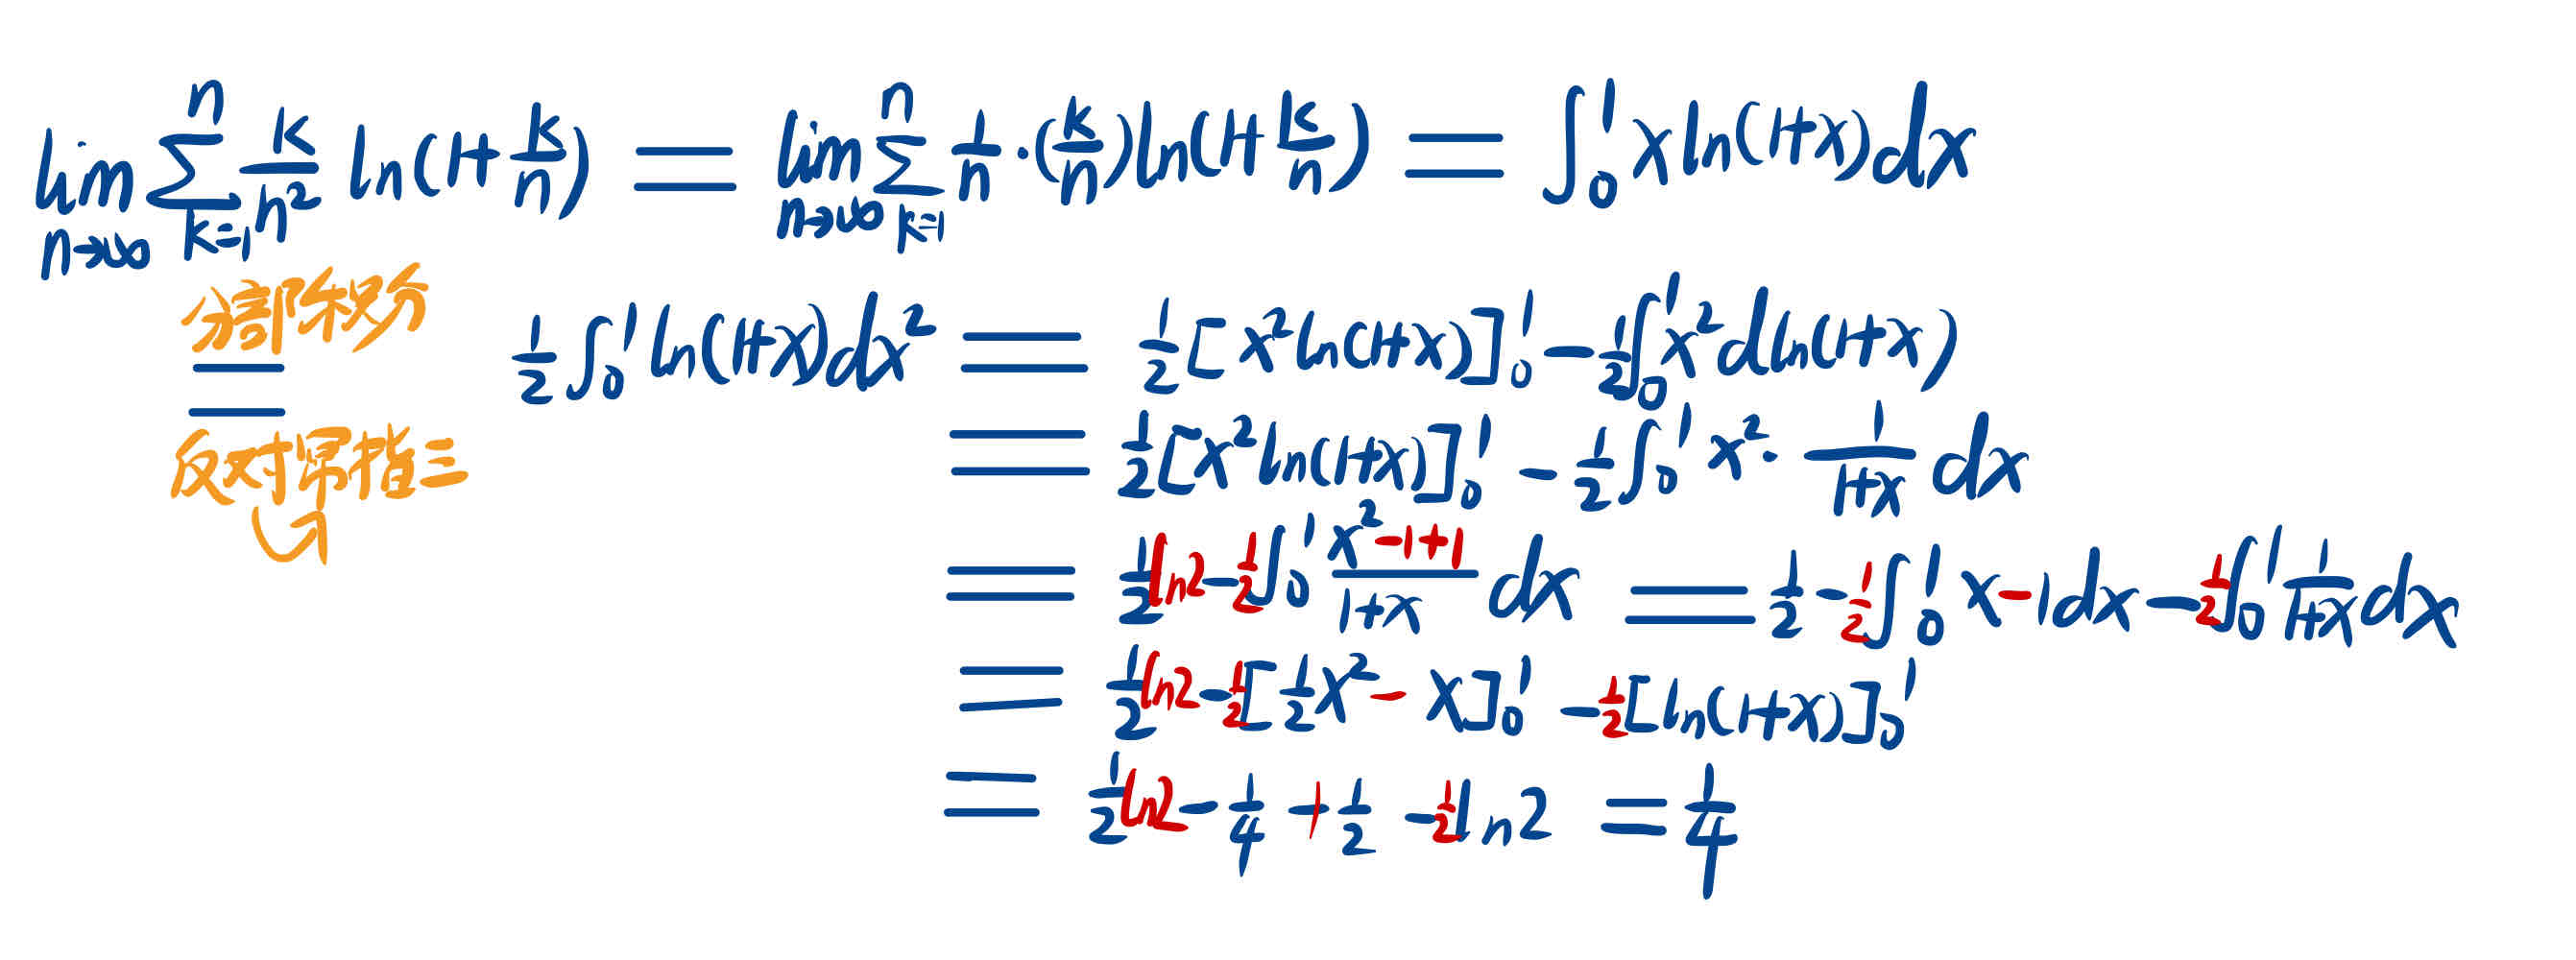 lim_{n→∞} ∑_{k=1}^{n} k/n² ln(1+k/n) = lim_{n→∞} ∑_{k=1}^{n} 1/n·(k/n)ln(1+k/n) = ∫₀¹ x ln(1+x)dx
分部积分
= 1/2 ∫₀¹ ln(1+x)dx² = 1/2[x²ln(1+x)]₀¹ − 1/2∫₀¹ x²dln(1+x)
反对幂指三
= 1/2[x²ln(1+x)]₀¹ − 1/2∫₀¹ x²· 1/(1+x) dx
= 1/2 ln2 − 1/2∫₀¹ (x²−1+1)/(1+x) dx = 1/2 − 1/2∫₀¹ x−1dx − 1/2∫₀¹ 1/(1+x) dx
= 1/2 ln2 − 1/2[1/2x² − x]₀¹ − 1/2[ln(1+x)]₀¹
= 1/2 ln2 − 1/4 + 1/2 − 1/2 ln2 = 1/4